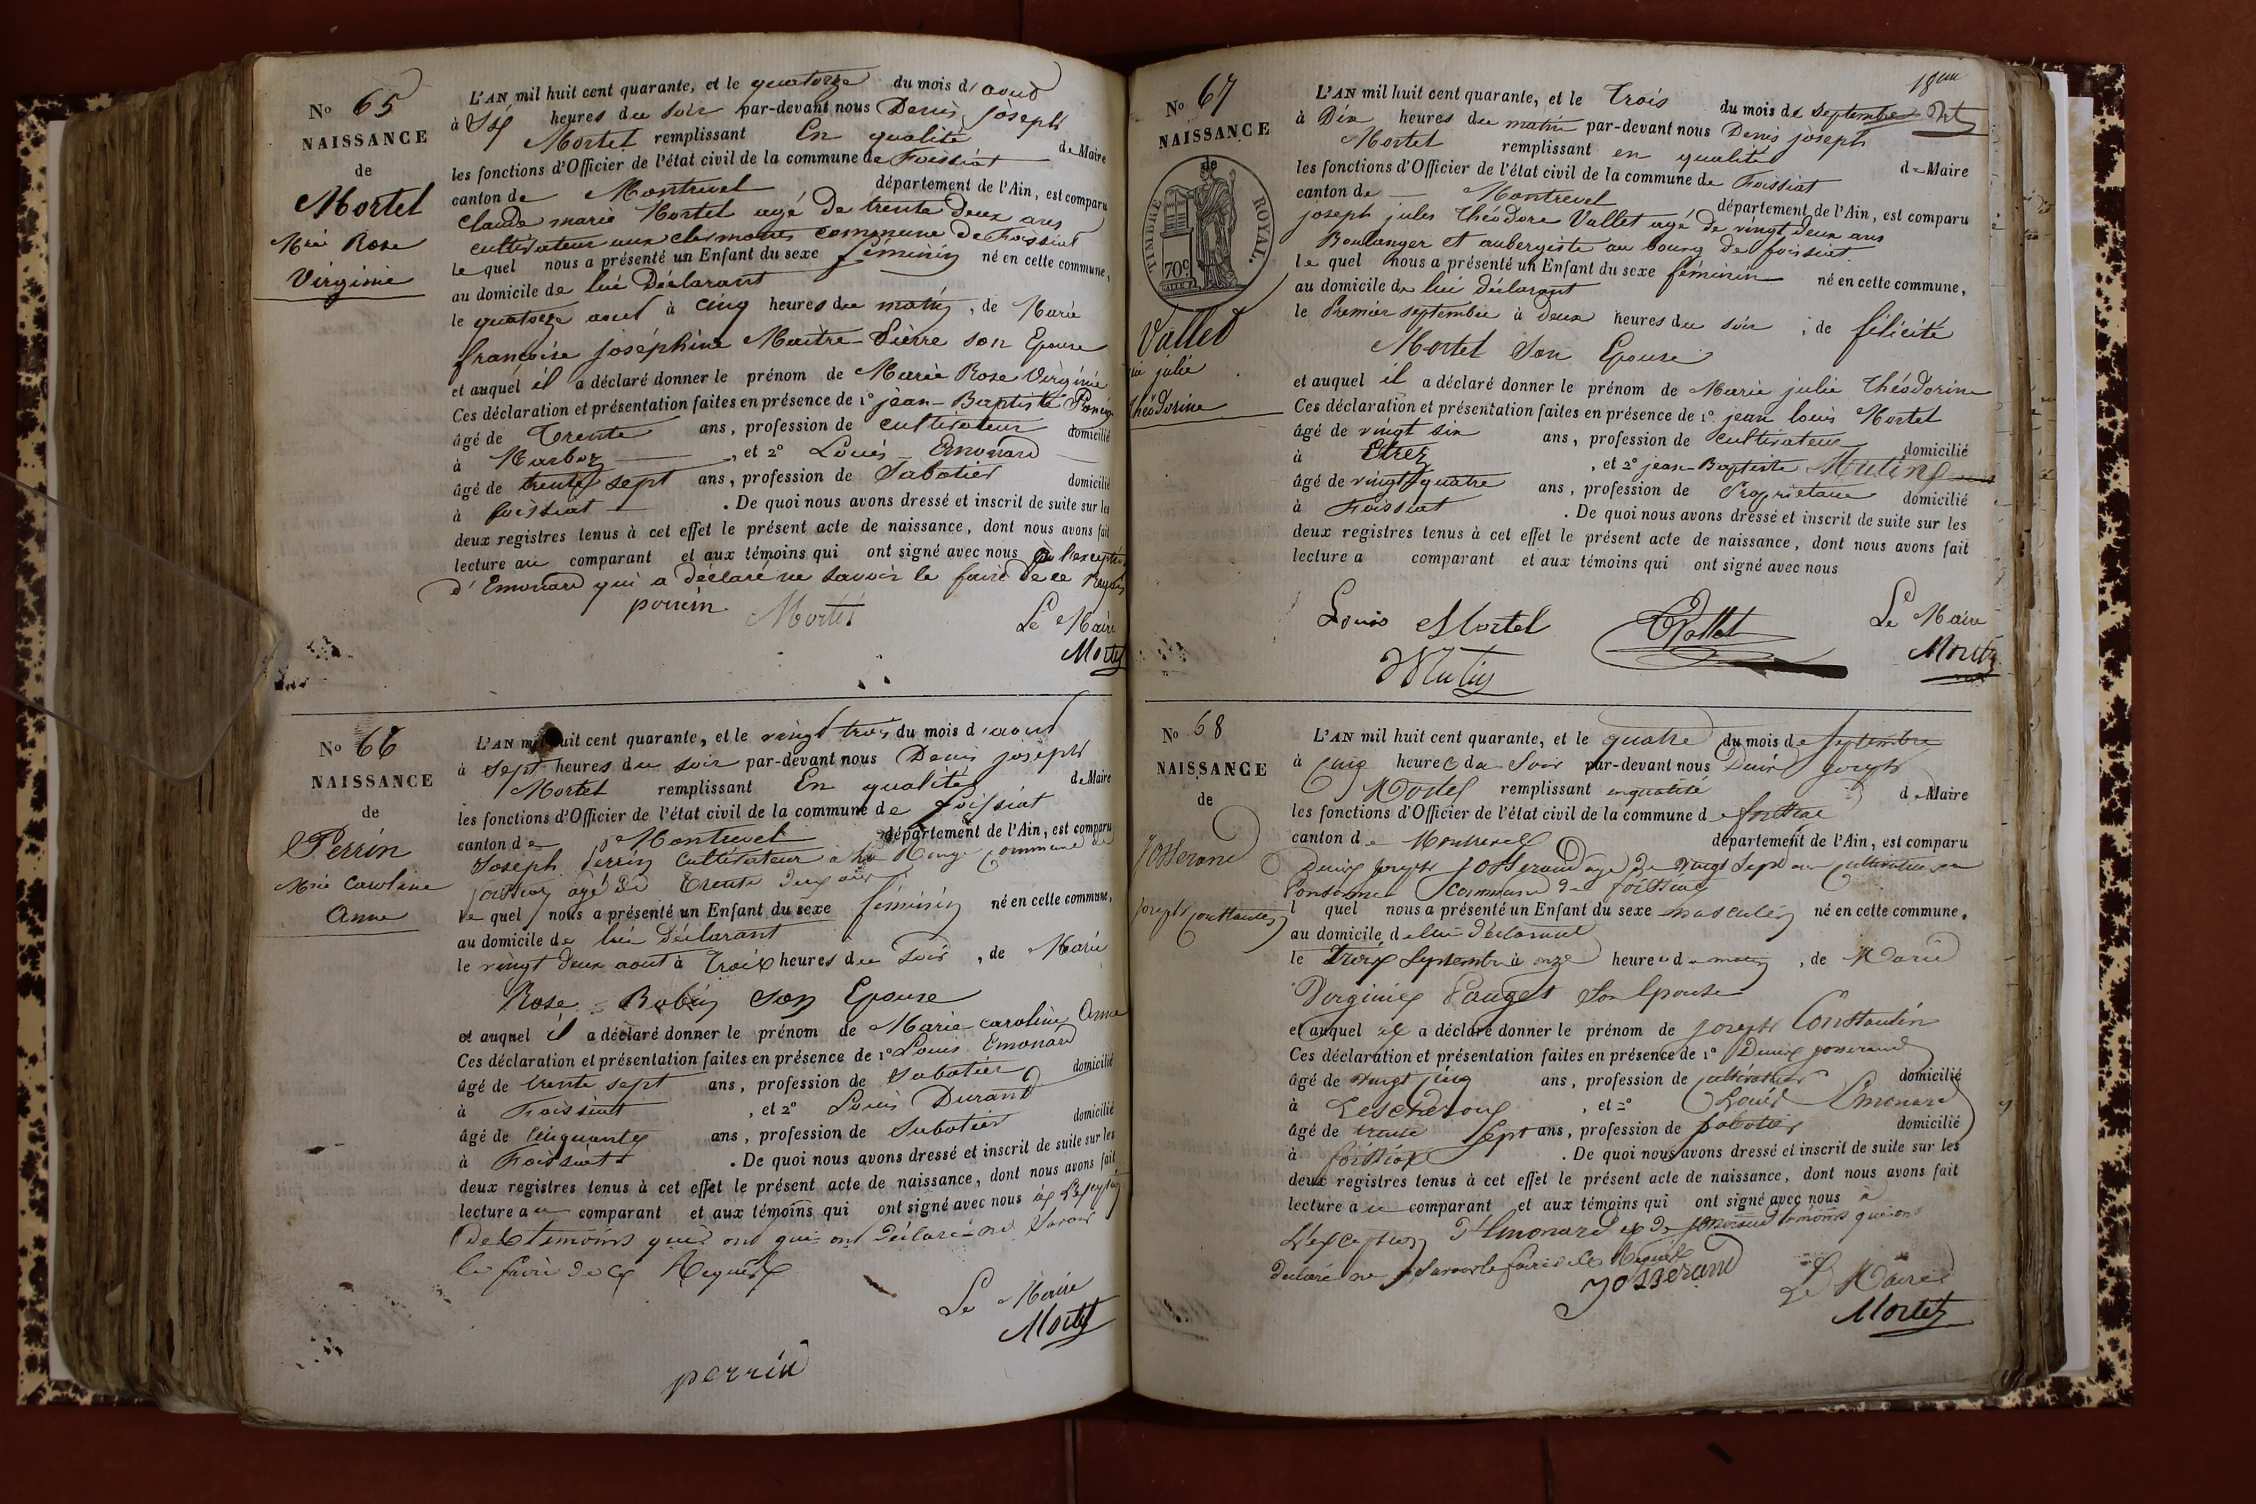 No 65
NAISSANCE
de
Mortel
Mie Rose
Virginie
L'AN mil huit cent quarante, et le quatorze du mois d'aout
à Six heures du soir par-devant nous Denis joseph
Mortel remplissant En qualité de Maire
les fonctions d'Officier de l'état civil de la commune de Foissiat
canton de Montrevel département de l'Ain, est comparu
Claude marie Mortel agé de trente deux ans
cultivateur aux clermonts commune de Foissiat
le quel nous a présenté un Enfant du sexe féminin né en cette commune,
au domicile de lui Déclarant
le quatorze aout à cinq heures du matin, de Marie
françoise joséphine Maitre-Pierre son Epouse
et auquel il a déclaré donner le prénom de Marie Rose Virginie
Ces déclaration et présentation faites en présence de 1o jean-Baptiste
âgé de Trente ans, profession de cultivateur domicilié
à Marboz, et 2o Louis Emonard
âgé de trente sept ans, profession de Sabotier domicilié
à foissiat. De quoi nous avons dressé et inscrit de suite sur les
deux registres tenus à cet effet le présent acte de naissance, dont nous avons fait
lecture au comparant et aux témoins qui ont signé avec nous à l'exception
d'Emonard qui a déclaré ne savoir le faire de ce Requis
Mortel
Le Maire
Mortel
No 66
NAISSANCE
de
Perrin
Mie Caroline
Anne
L'AN mil huit cent quarante, et le vingt trois du mois d'aout
à sept heures du soir par-devant nous Denis joseph
Mortel remplissant En qualité de Maire
les fonctions d'Officier de l'état civil de la commune de foissiat
canton de Montrevel département de l'Ain, est comparu
Joseph Perrin Cultivateur à la commune de
foissiat agé de trente deux ans
le quel nous a présenté un Enfant du sexe féminin né en cette commune,
au domicile de lui Déclarant
le vingt deux aout à Trois heures du Soir, de Marie
Rose Robin Son Epouse
et auquel il a déclaré donner le prénom de Marie caroline Anne
Ces déclaration et présentation faites en présence de 1o Louis Emonard
âgé de trente sept ans, profession de Sabotier domicilié
à Foissiat, et 2o Louis Durand
âgé de Cinquante ans, profession de Sabotier domicilié
à Foissiat. De quoi nous avons dressé et inscrit de suite sur les
deux registres tenus à cet effet le présent acte de naissance, dont nous avons fait
lecture au comparant et aux témoins qui ont signé avec nous à l'exception
des témoins qui ont qui ont déclaré ne Savoir
le faire de ce Requis
Le Maire
Mortel
perrin
18em
No 67
NAISSANCE
de
TIMBRE ROYAL.
70c
Vallet
julie
théodorine
L'AN mil huit cent quarante, et le Trois du mois de Septembre
à Dix heures du matin par-devant nous Denis joseph
Mortel remplissant en qualité de Maire
les fonctions d'Officier de l'état civil de la commune de Foissiat
canton de Montrevel département de l'Ain, est comparu
joseph jules théodore Vallet agé de vingt deux ans
Boulanger et aubergiste au bourg de foissiat
le quel nous a présenté un Enfant du sexe féminin né en cette commune,
au domicile de lui déclarant
le Premier septembre à deux heures du soir, de félicité
Mortel Son Epouse
et auquel il a déclaré donner le prénom de Marie julie théodorine
Ces déclaration et présentation faites en présence de 1o jean louis Mortel
âgé de vingt six ans, profession de cultivateur domicilié
à Etrez, et 2o jean-Baptiste Mutin
âgé de vingt quatre ans, profession de Propriétaire domicilié
à Foissiat. De quoi nous avons dressé et inscrit de suite sur les
deux registres tenus à cet effet le présent acte de naissance, dont nous avons fait
lecture a comparant et aux témoins qui ont signé avec nous
Louis Mortel Vallet Le Maire
Mutin Mortel
No 68
NAISSANCE
de
Josserand
joseph Constantin
L'AN mil huit cent quarante, et le quatre du mois de Septembre
à Cinq heures du Soir par-devant nous Denis joseph
Mortel remplissant en qualité de Maire
les fonctions d'Officier de l'état civil de la commune de foissiat
canton de Montrevel département de l'Ain, est comparu
Denis joseph Josserand agé de vingt Sept ans cultivateur
commune de foissiat
l quel nous a présenté un Enfant du sexe masculin né en cette commune,
au domicile de lui déclarant
le Trois Septembre à onze heures du matin, de Marie
Virginie Pauget Son Epouse
et auquel il a déclaré donner le prénom de joseph Constantin
Ces déclaration et présentation faites en présence de 1o Denis josserand
âgé de vingt cinq ans, profession de cultivateur domicilié
à Lescheroux, et 2o Louis Emonard
âgé de trente Sept ans, profession de sabotier domicilié
à foissiat. De quoi nous avons dressé et inscrit de suite sur les
deux registres tenus à cet effet le présent acte de naissance, dont nous avons fait
lecture au comparant et aux témoins qui ont signé avec nous à
L'exception d'Emonard et de josserand témoins qui ont
declaré ne Savoir le faire de ce Requis
Josserand
Le Maire
Mortel